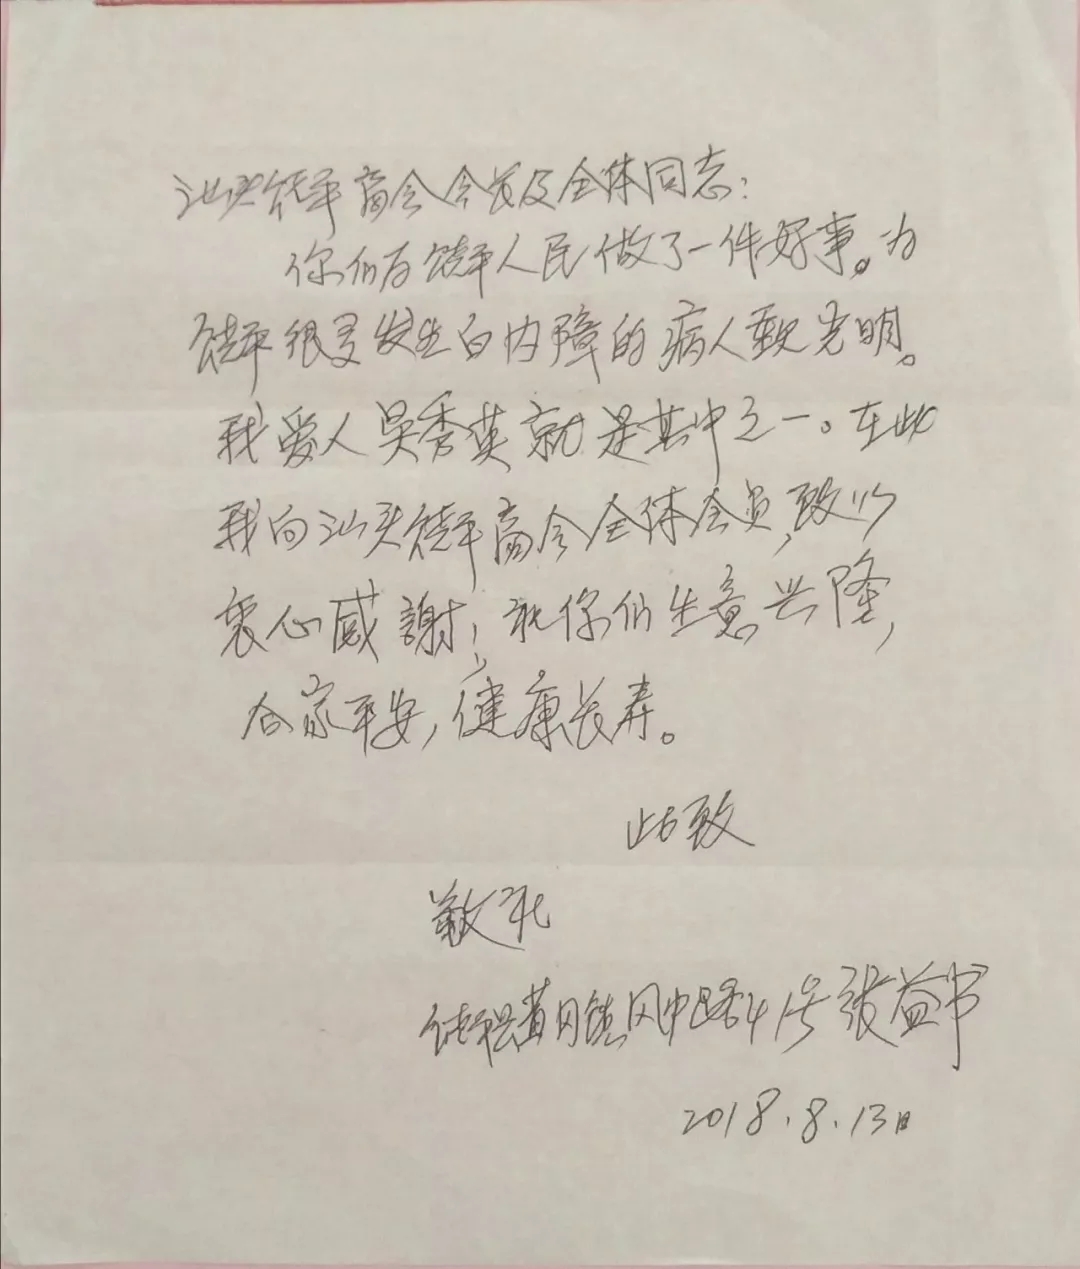 汕头饶平商会会长及全体同志:
你们为饶平人民做了一件好事。为
饶平很多发生白内障的病人重见光明。
我爱人吴秀英就是其中之一。在此
我向汕头饶平商会全体会员,致以
衷心感謝,祝你们生意兴隆,
合家平安,健康长寿。
此致
敬礼
饶平县黄冈镇凤中路41号张益书
2018.8.13日